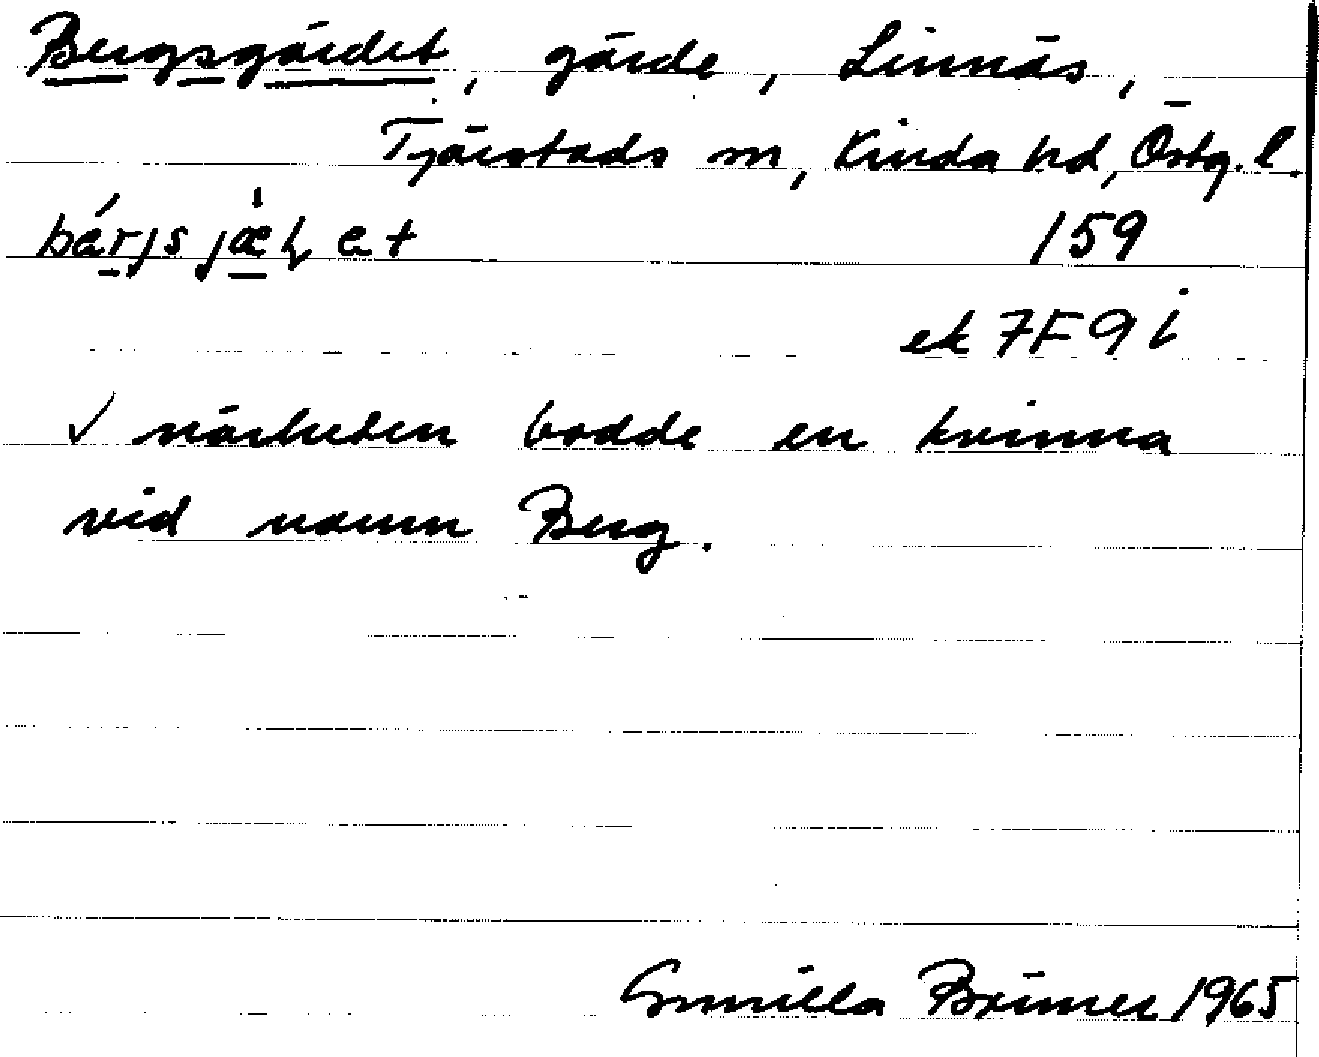 Bergsgärdet, gärde, Linnäs,
Tjärstads sn, Kinda hd, Östg. l.
159
ek 7F 9 i
I närheten bodde en kvinna
vid namn Berg.
Gunilla Brimer 1965